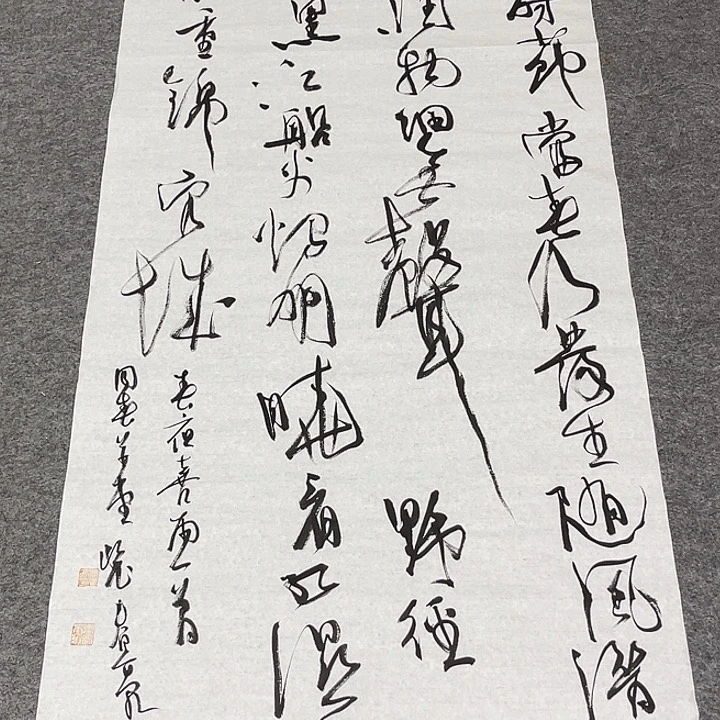 時節當春乃發生隨風潛
潤物細無聲野徑
黑江船火獨明曉看紅濕
重錦官城
春夜喜雨一首
春草堂